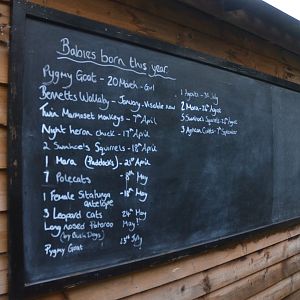 Babies born this year
Pygmy Goat - 20 March - Girl
Bennetts Wallaby - January - Visable now
Twin Marmoset monkeys - 7th April
Night heron chick - 17th April
2 Swinhoe's Squirrels - 18th April
1 Mara (Paddock) - 21st April
7 Polecats - 8th May
1 Female Sitatunga - 18th May
antelope
3 Leopard cats 24th May
Long nosed Potoroo May
(by Bush Dogs)
Pygmy Goat 13th July
1 Agouti - July
2 Mara - August
5 Swinhoe's Squirrels - August
3 September